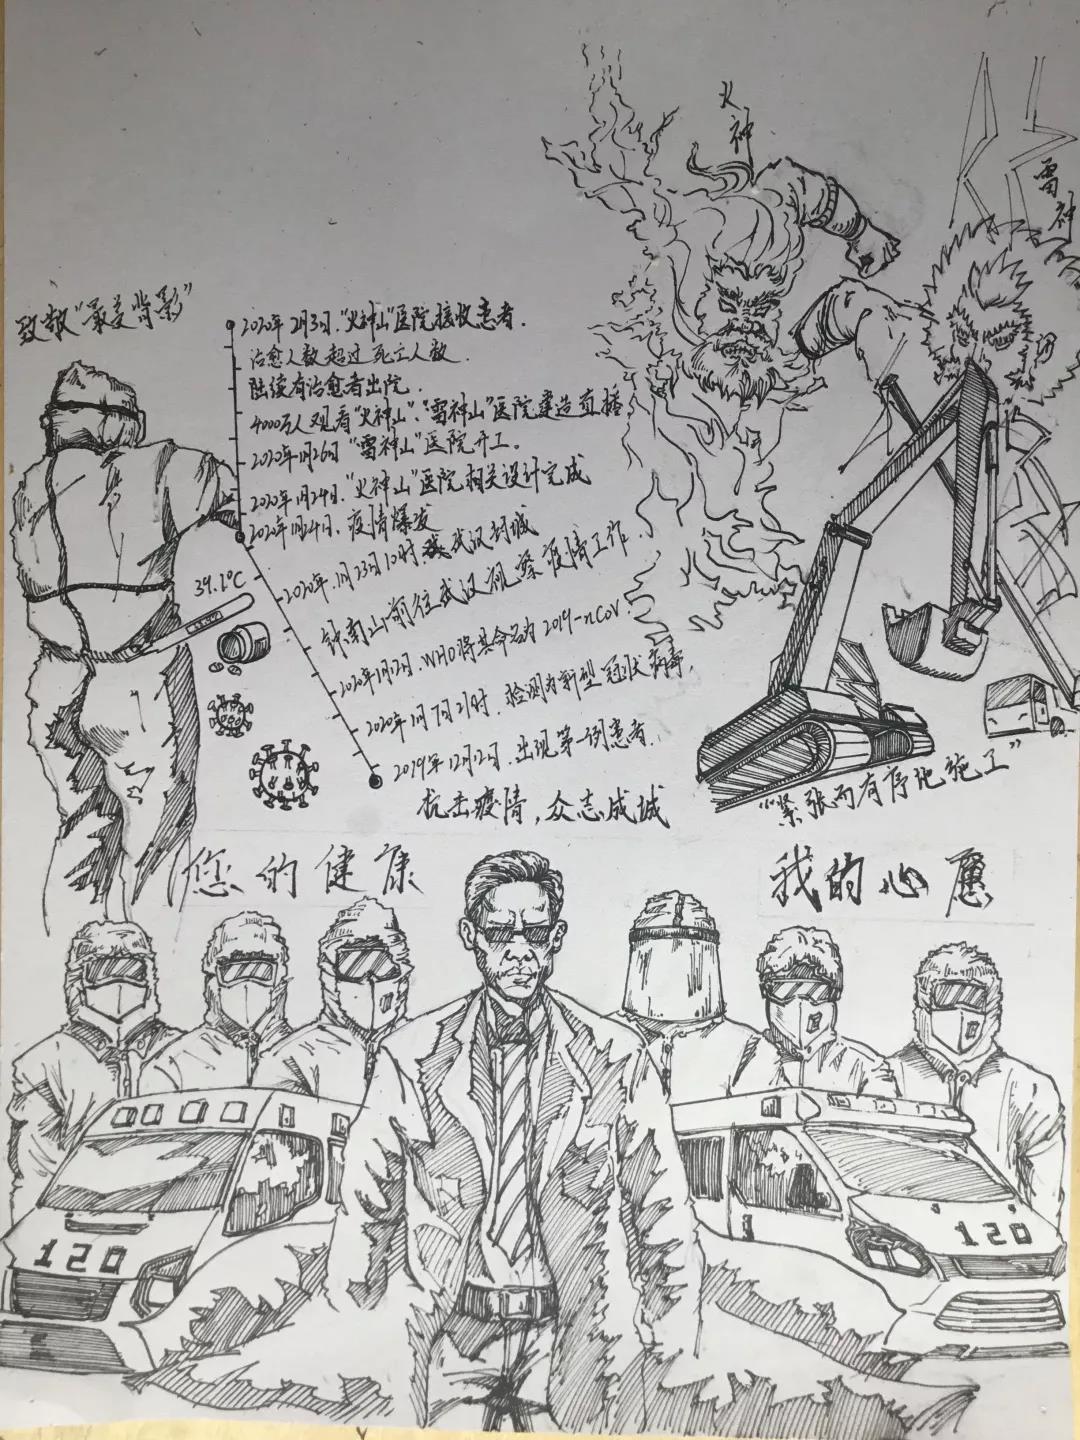 火神
雷神
致敬"最美背影"
2020年2月3日."火神山"医院接收患者.
治愈人数超过死亡人数.
陆续有治愈者出院.
4000万人观看"火神山"、"雷神山"医院建造直播
2020年1月26日"雷神山"医院开工。
2020年1月24日."火神山"医院相关设计完成
2020年1月24日.疫情爆发
2020年.1月23日10时.武汉封城
钟南山前往武汉视察疫情工作.
2020年1月12日.WHO将其命名为2019-nCoV
2020年1月7日21时.检测为新型冠状病毒,
2019年12月12日.出现第一例患者.
39.1°C
抗击疫情,众志成城
"紧张而有序地施工"
您的健康
我的心愿
120
120